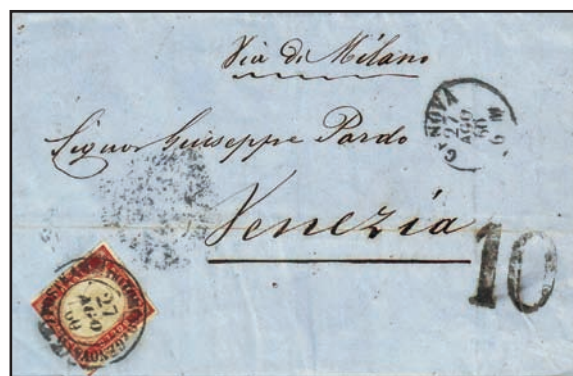 Via di Milano
GENOVA
27
AGO
Signor Giuseppe Pardo
Venezia
10
27
AGO
60